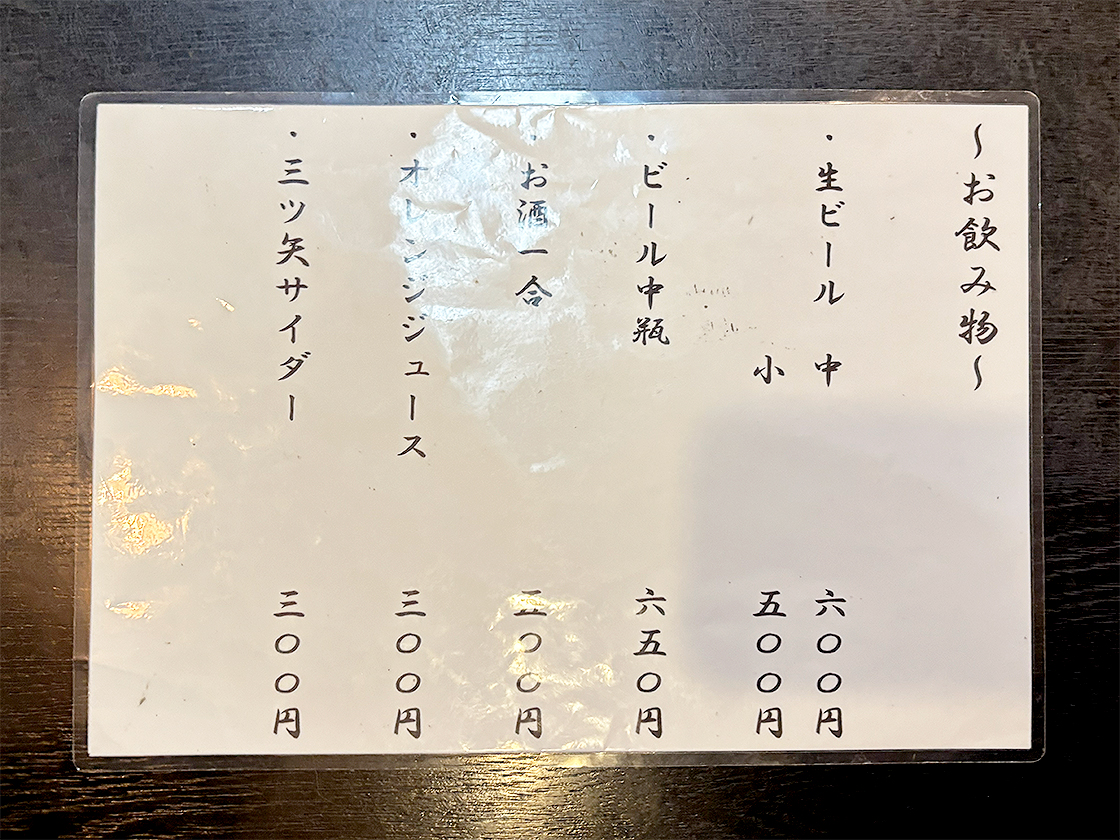 ～お飲み物～
・生ビール 中 六〇〇円
小 五〇〇円
・ビール中瓶 六五〇円
・お酒一合 五〇〇円
・オレンジジュース 三〇〇円
・三ツ矢サイダー 三〇〇円